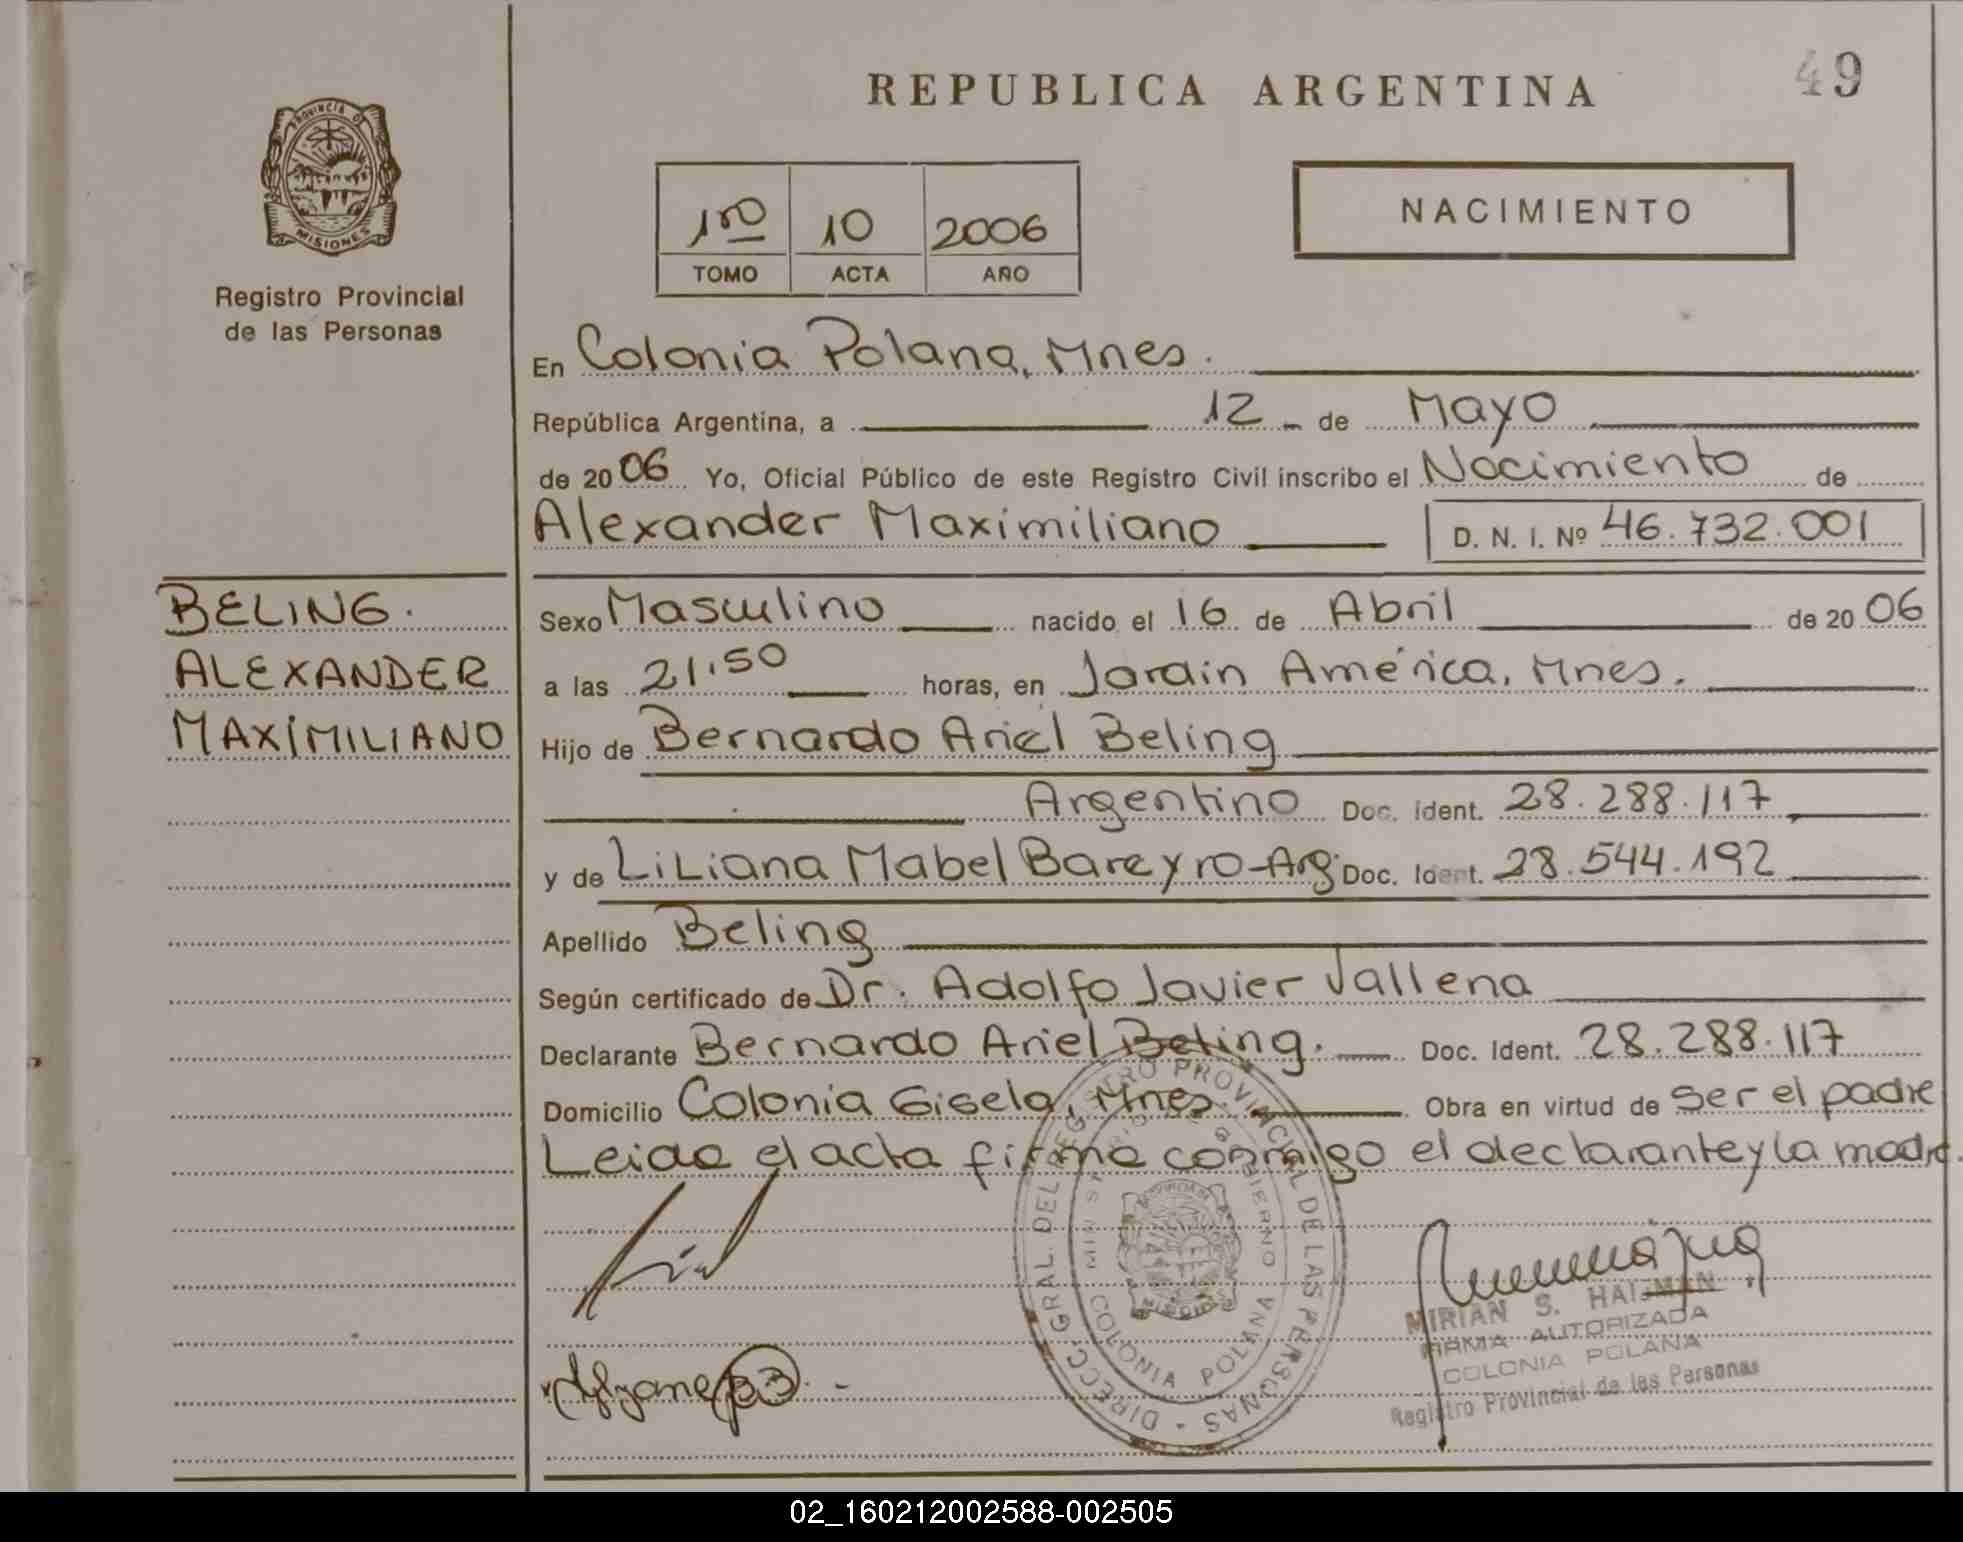 REPUBLICA ARGENTINA
49
PROVINCIA DE
MISIONES
Registro Provincial
de las Personas
1ro 10 2006
TOMO ACTA AÑO
NACIMIENTO
En Colonia Polana, Mnes.
República Argentina, a 12 - de Mayo
de 2006 Yo, Oficial Público de este Registro Civil inscribo el Nacimiento de
Alexander Maximiliano D. N. I. Nº 46.732.001
BELING.
ALEXANDER
MAXIMILIANO
Sexo Masculino nacido el 16 de Abril de 2006
a las 21.50 horas, en Jardin América, Mnes.
Hijo de Bernardo Ariel Beling
Argentino Doc. Ident. 28.288.117
y de Liliana Mabel Bareyro-Arg. Doc. Ident. 28.544.192
Apellido Beling
Según certificado de Dr. Adolfo Javier Vallena
Declarante Bernardo Ariel Beling. Doc. Ident. 28.288.117
Domicilio Colonia Gisela, Mnes. Obra en virtud de Ser el padre
Leida el acta firma conmigo el declarante y la madre.
DIRECC. GRAL. DEL REGISTRO PROVINCIAL DE LAS PERSONAS -
COLONIA POLANA
MISIONES
MIRIAN S.
FIRMA AUTORIZADA
COLONIA POLANA
Registro Provincial de las Personas
02_160212002588-002505